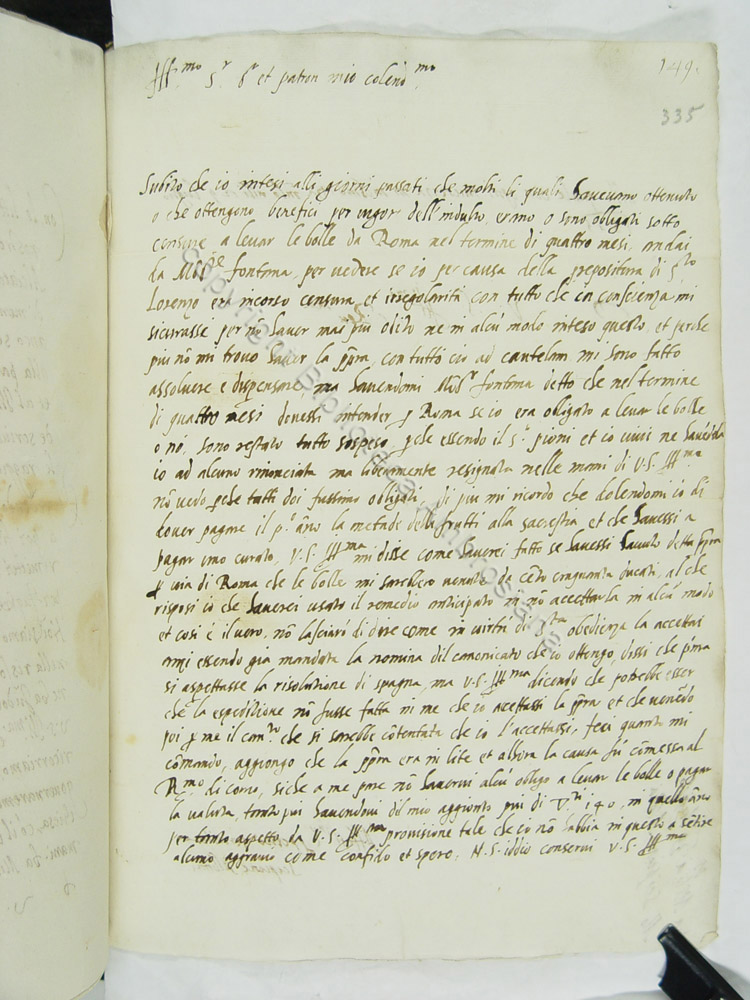 Ill.mo S.r S.r et patron mio colend.mo
149.
335
Subito che io intesi alli giorni passati che molti li quali havevano ottenuto
o che ottengono benefici per vigor dell'indulto, erano o sono obligati sotto
censure a levar le bolle da Roma nel termine di quattro mesi, andai
da Mons.re fontana, per vedere se io per causa della prepositura di S.to
Lorenzo era incorso censura et irregolarità con tutto che in conscienza mi
sicurasse per nō haver mai piu odito ne in alcū modo inteso questo, et perche
piu nō mi trovo haver la ppra, con tutto cio ad cautelam mi sono fatto
assolvere e dispensare, ma havendomi Mons.r fontana detto che nel termine
di quattro mesi dovessi intender p Roma se io era obligato a levar le bolle
o nó, sono restato tutto sospeso, pche essendo il s.r piorni et io vivi ne havēdola
io ad alcuno rinonciata ma liberamente resignata nelle mani di V.S. Ill.ma
nō vedo pche tutti doi fussimo obligati, di piu mi ricordo che dolendomi io di
dover pagare il p.o āno la metade delli frutti alla sacrestia et che havessi a
pagar uno curato, V.S. Ill.ma mi disse come haverei fatto se havessi havuto detta ppra
p via di Roma che le bolle mi sarebbero venute da cēto cinquanta ducati, al che
risposi io che haverei usato il remedio anticipato in nō accettarla in alcū modo
et cosi é il vero, nō lasciaró di dire come in virtú di S.ta obedienza la accettai
anzi essendo giá mandata la nomina dil canonicato che io ottengo, dissi che prima
si aspettasse la risolutione di spagna, ma V.S. Ill.ma dicendo che potrebbe esser
che la espeditione nō fusse fatta in me che io accettassi la ppra et che venēdo
poi p me il can.to che si sarebbe cōtentata che io l'accettassi, feci quanto mi
cōmando, aggiongo che la ppra era in lite et alhora la causa fú cōmessa al
R.mo di corno, siche a me pare nō havervi alcū obligo a levar le bolle o pagar
la valuta, tanto piu havendovi dil mio aggionto piu di 140, in quello āno
per tanto aspetto da V.S. Ill.ma provisione tale che io nō habbia in questo a sētire
alcuno aggravio come confido et spero, N.S. iddio conservi V.S. Ill.ma